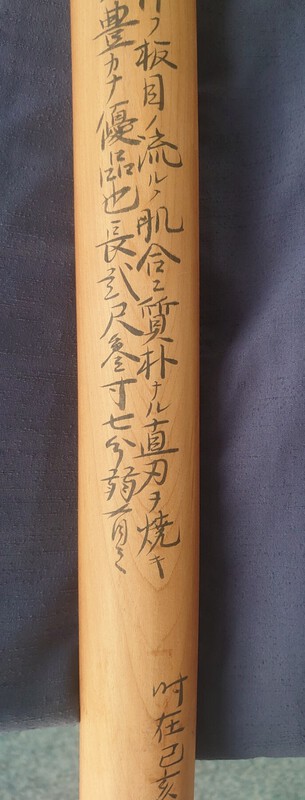 ノ板目ノ流ルヽ肌合ニ質朴ナル直刃ヲ焼キ
豊カナ優品也長弐尺叄寸七分弱有之
时在己亥